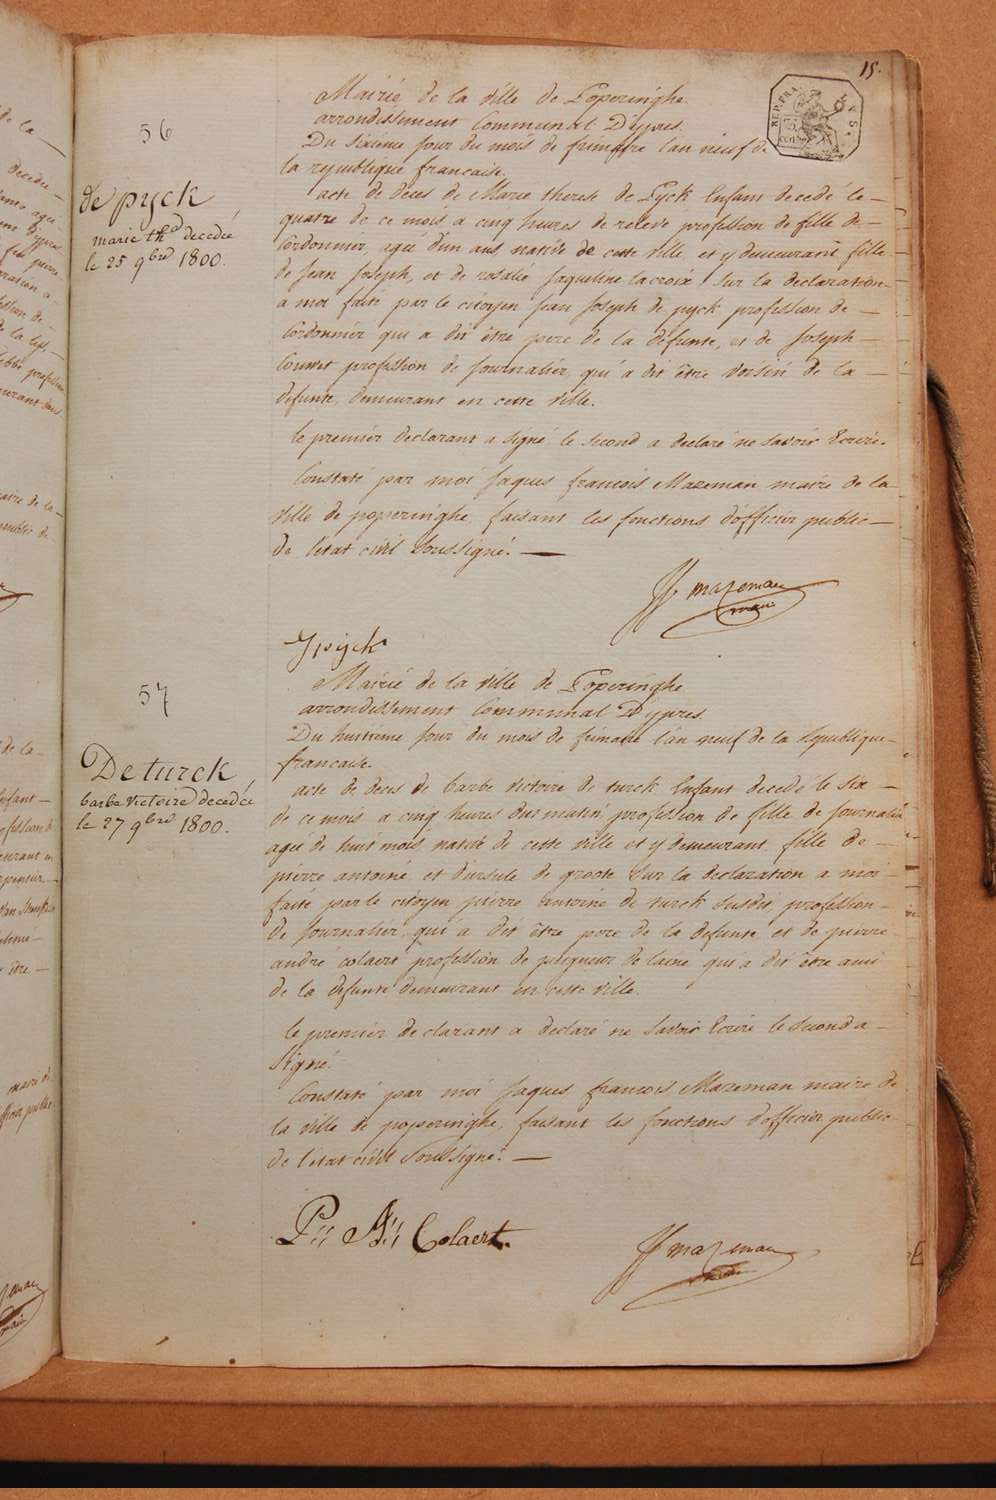 15.
REP. FRA.
56
Mairie de la ville de Poperinghe
arrondissement Communal D'ypres.
Du Sixieme jour du mois de frimaire l'an neuf de
la republique francaise.
de pyck
marie th.e decedée
le 25 9bre 1800.
acte de deces de Marie therese de Pyck Enfant decedé le
quatre de ce mois a cinq heures de relevé profession de fille de
Cordonnier, agée d'un ans, native de cette ville et y demeurant fille
de Jean Joseph, et de rosalie jaqueline lacroix, Sur la declaration
a moi faite par le citoyen jean Joseph de pyck profession de
Cordonnier qui a dit être pere de la défunte, et de Joseph
Couvert profession de journalier, qui a dit être voisin de la
defunte, demeurant en cette ville.
le premier declarant a signé le second a declaré ne savoir Ecrire.
Constaté par moi Jaques francois Mazeman maire de la
ville de poperinghe, faisant les fonctions d'officier public
de l'etat civil Soussigné.
JF mazeman
maire
J pijck
57
Mairie de la ville de Poperinghe
arrondissement Communal D'ypres.
Du huitieme jour du mois de frimaire l'an neuf de la republique
francaise.
De turck
barbe victoire decedée
le 27 9bre 1800.
acte de deces de barbe victoire de turck Enfant decedé le six
de ce mois a cinq heures du matin, profession de fille de journalier
agée de huit mois, native de cette ville et y demeurant, fille de
pierre antoine et d'ursule de groote Sur la declaration a moi
faite par le citoyen pierre antoine de turck susdit, profession
de journalier, qui a dit être pere de la defunte et de pierre
andré colaert profession de peigneur de laine qui a dit être ami
de la defunte demeurant en cette ville.
le premier declarant a declaré ne savoir Ecrire le second a
signé.
Constaté par moi Jaques francois Mazeman maire de
la ville de poperinghe, faisant les fonctions d'officier public
de l'etat civil Soussigné.
P:: A:: Colaert.
JF mazeman
maire